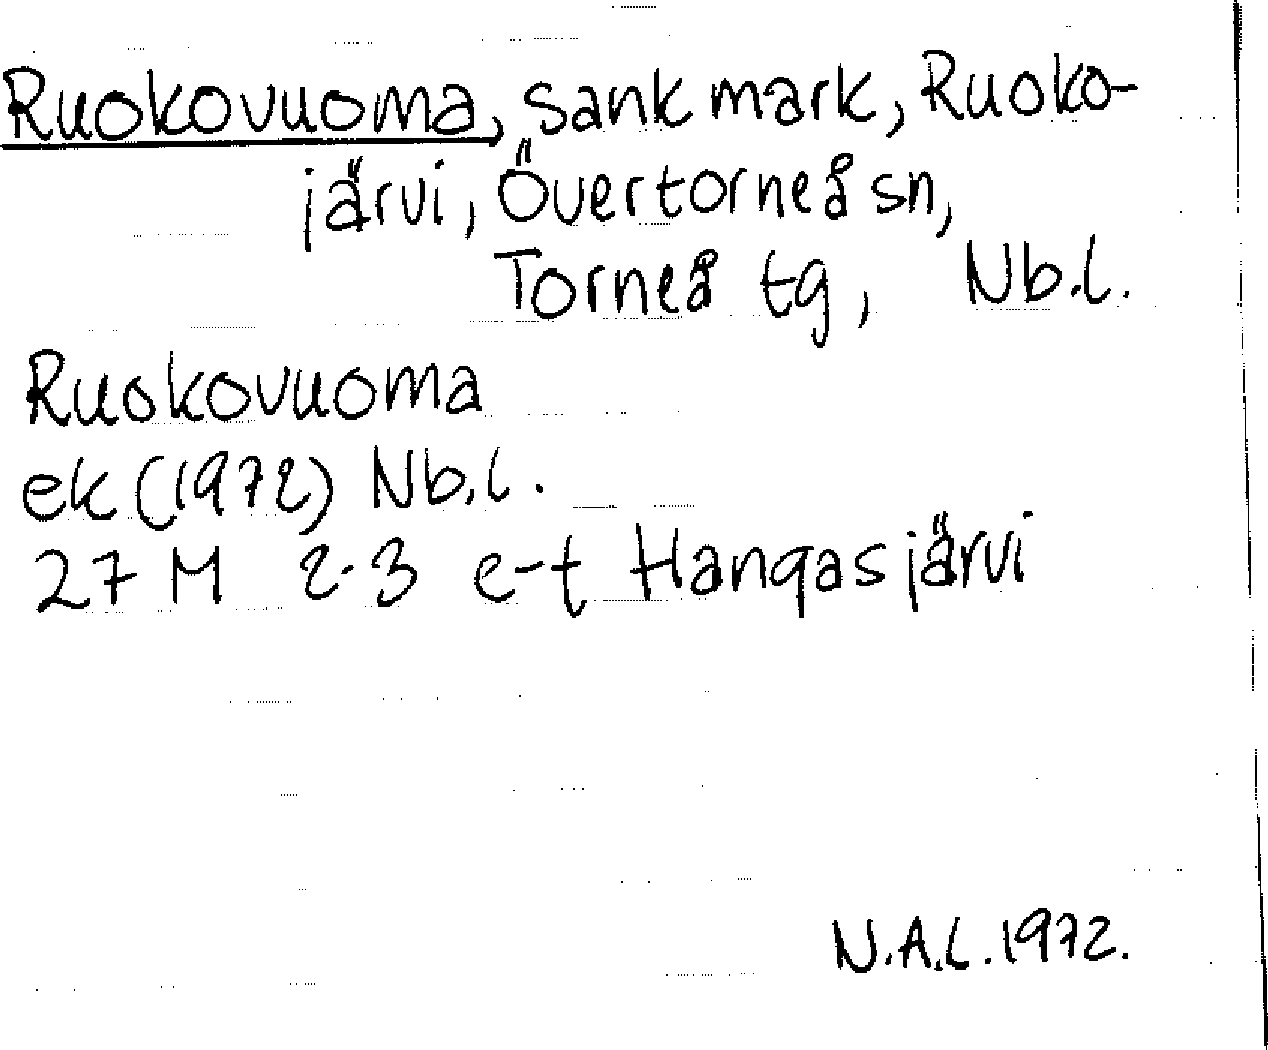 Ruokovuoma, sank mark, Ruoko-
järvi, Övertorneå sn,
Torneå tg, Nb.l.
Ruokovuoma
ek (1972) Nb.l.
27 M 2-3 e-t Hangasjärvi
N.A.L. 1972.